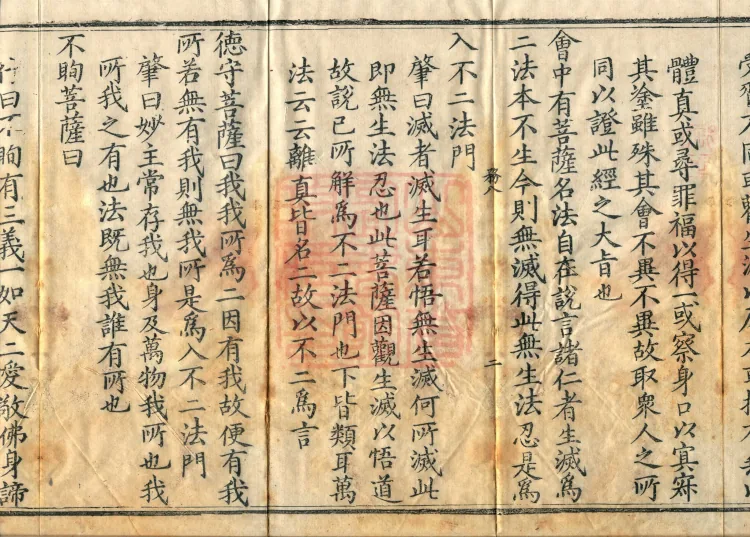 體真或尋罪福以得一或察身口以寘寂
其塗雖殊其會不異不異故取衆人之所
同以證此經之大旨也
會中有菩薩名法自在說言諸仁者生滅爲
二法本不生今則無滅得此無生法忍是爲
二
入不二法門
肇曰滅者滅生耳若悟無生滅何所滅此
即無生法忍也此菩薩因觀生滅以悟道
故說已所解爲不二法門也下皆類耳萬
法云云離真皆名二故以不二爲言
德守菩薩曰我我所爲二因有我故便有我
所若無有我則無我所是爲入不二法門
肇曰妙主常存我也身及萬物我所也我
所我之有也法既無我誰有所也
不眴菩薩曰
什曰不眴有三義一如天二愛敬佛身諦